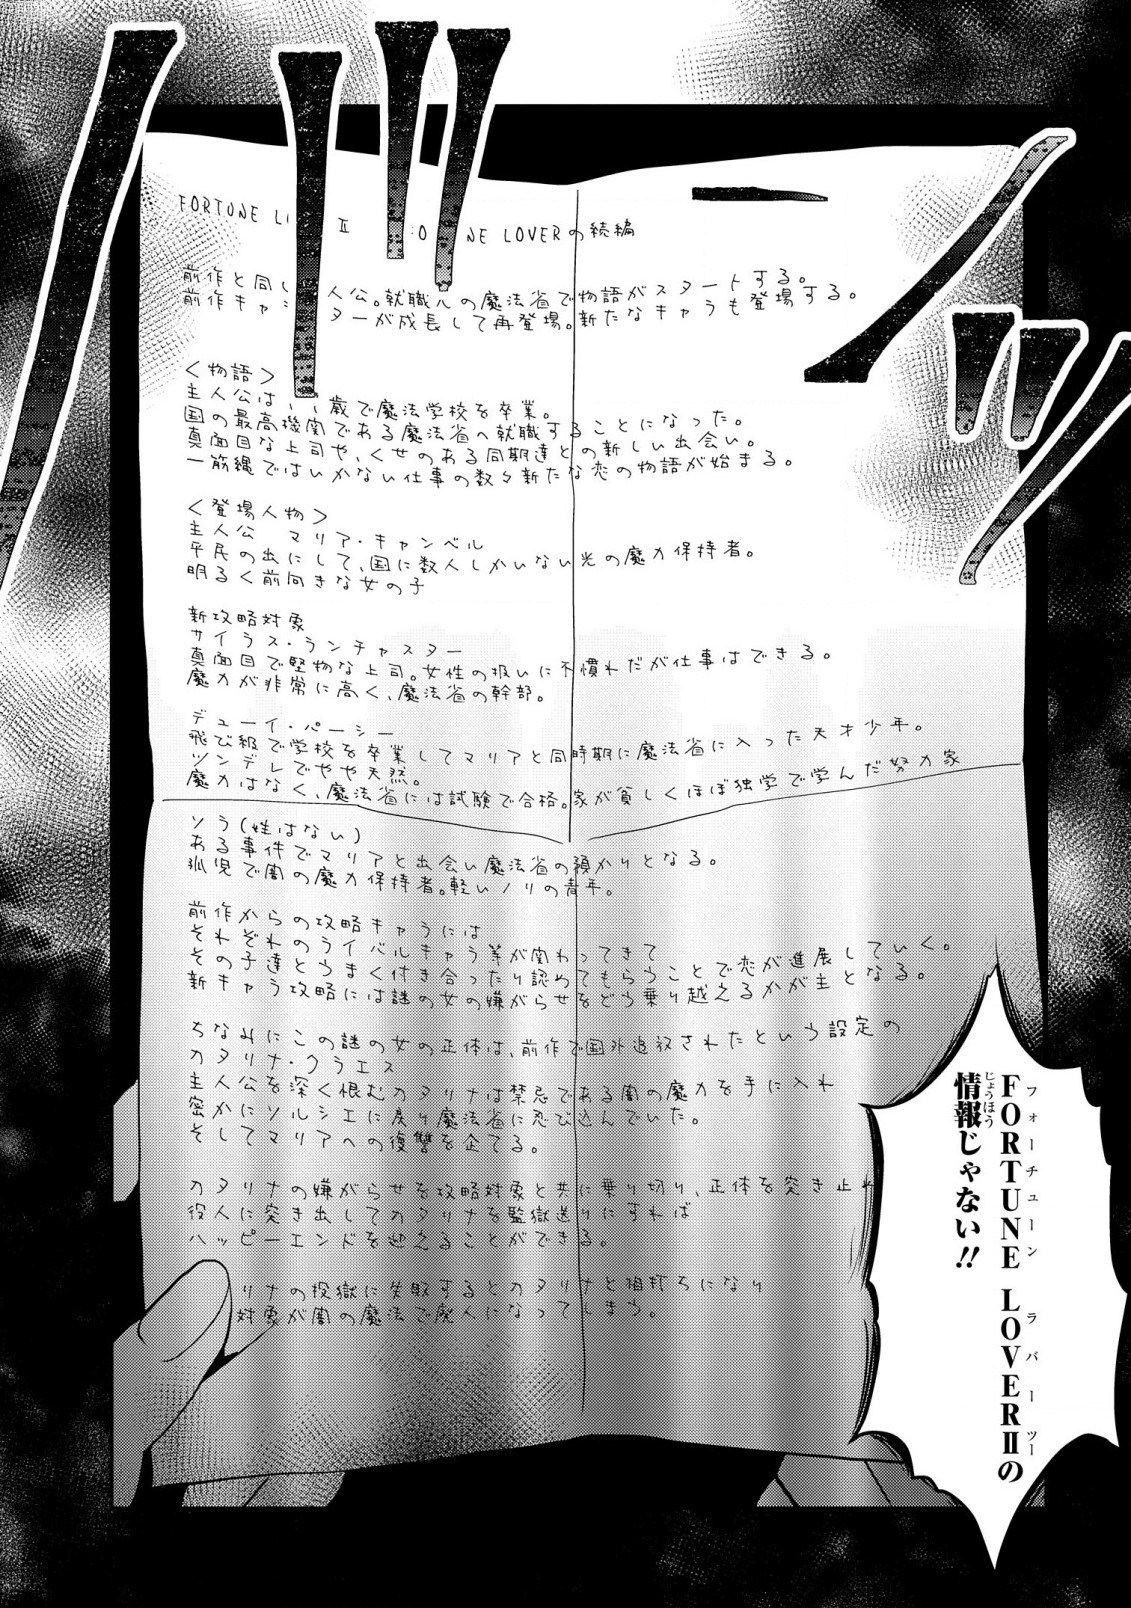 FORTUNE L Ⅱ O NE LOVERの続編
前作と同じ 人公。就職 の魔法省で物語がスタートする。
前作キャ ターが成長して再登場。新たなキャラも登場する。
＜物語＞
主人公は 歳で魔法学校を卒業。
国の最高機関である魔法省へ就職することになった。
真面目な上司や、くせのある同期達との新しい出会い。
一筋縄ではいかない仕事の数々新たな恋の物語が始まる。
＜登場人物＞
主人公 マリア・キャンベル
平民の出にして、国に数人しかいない光の魔力保持者。
明るく前向きな女の子
新攻略対象
サイラス・ランチャスター
真面目で堅物な上司。女性の扱いに不慣れだが仕事はできる。
魔力が非常に高く、魔法省の幹部。
デューイ・パーシー
飛び級で学校を卒業してマリアと同時期に魔法省に入った天才少年。
ツンデレでやや天然。
魔力はなく、魔法省には試験で合格。家が貧しくほぼ独学で学んだ努力家
ソラ(姓はない)
ある事件でマリアと出会い魔法省の預かりとなる。
孤児で闇の魔力保持者。軽いノリの青年。
前作からの攻略キャラには
それぞれのライバルキャラ等が関わってきて
その子達とうまく付き合ったり認めてもらうことで恋が進展していく。
新キャラ攻略には謎の女の嫌がらせをどう乗り越えるかが主となる。
ちなみにこの謎の女の正体は、前作で国外追放されたという設定の
カタリナ・クラエス
主人公を深く恨むカタリナは禁忌である闇の魔力を手に入れ
密かにソルシエに戻り魔法省に忍び込んでいた。
そしてマリアへの復讐を企てる。
カタリナの嫌がらせを攻略対象と共に乗り切り、正体を突き止め
役人に突き出してカタリナを監獄送りにすれば
ハッピーエンドを迎えることができる。
リナの投獄に失敗するとカタリナと相打ちになり
対象が闇の魔法で廃人になってしまう。
FORTUNE LOVERⅡの
フォーチューン ラバーツー
情報じゃない!!
じょうほう